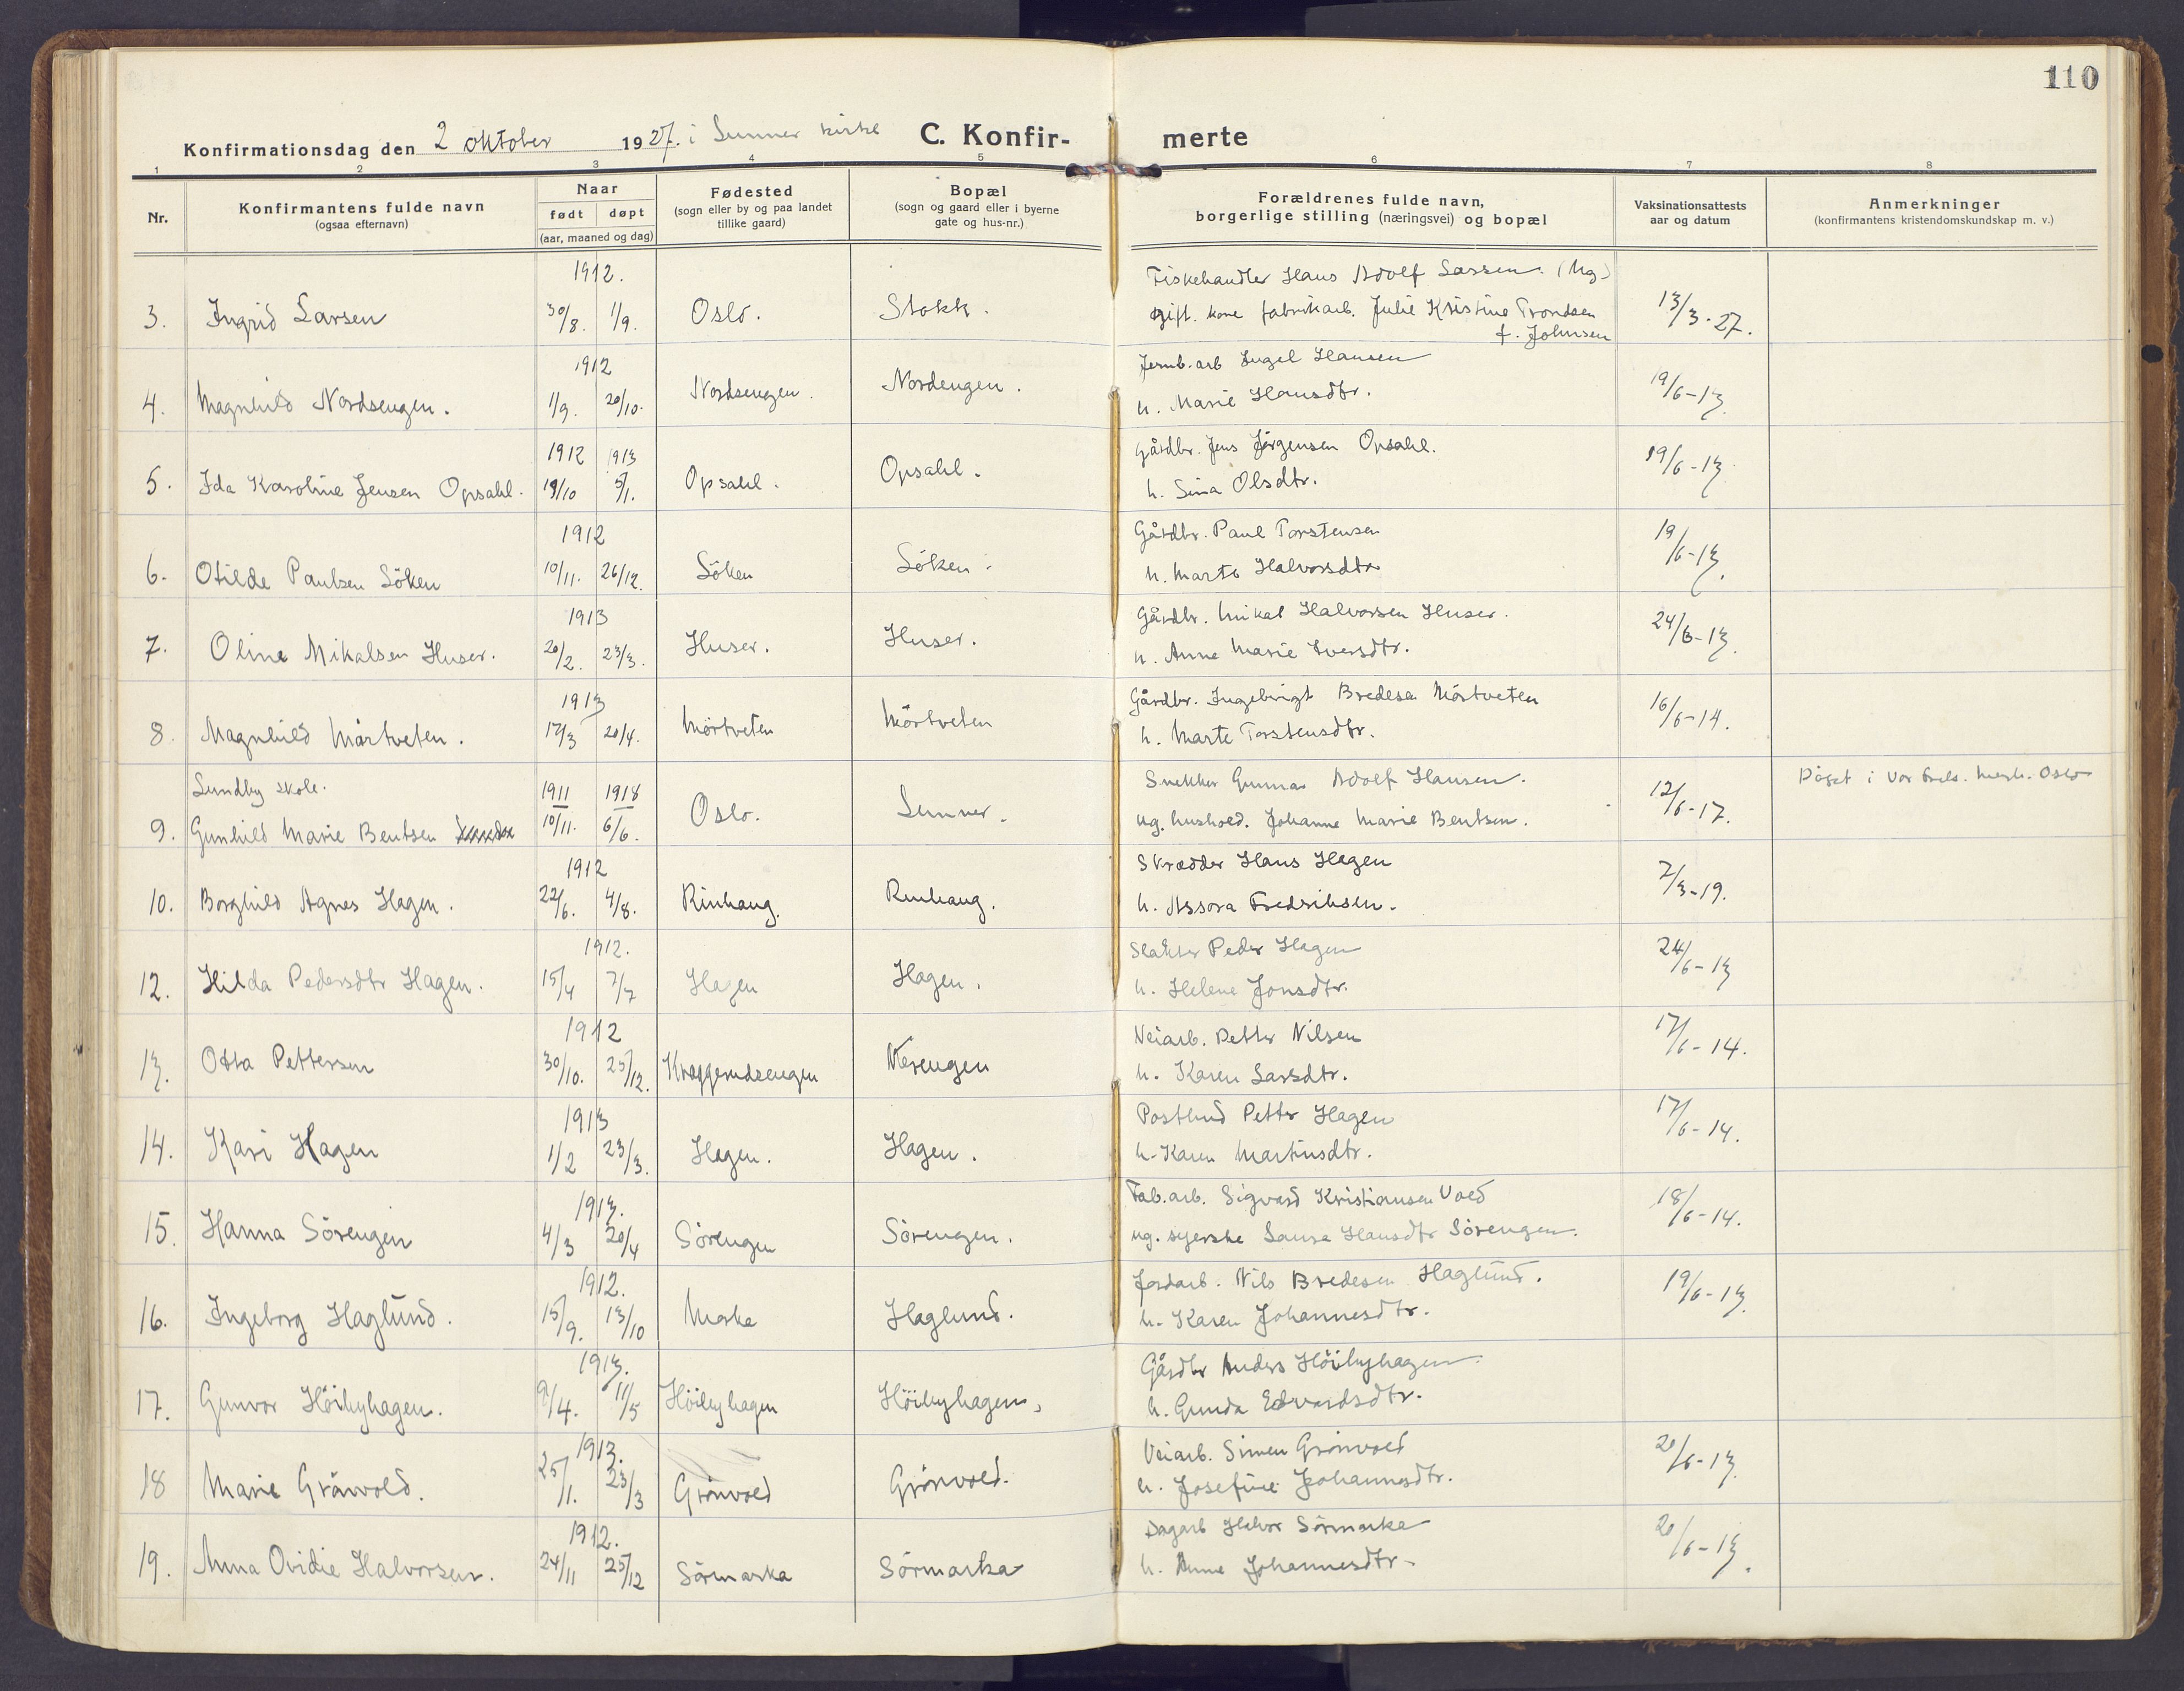 110
Konfirmationsdag den 2 oktober 1927. i Lunner kirke C. Konfir- merte
1 2 3 4 5 6 7 8
Nr. Konfirmantens fulde navn (ogsaa efternavn) Naar født døpt (aar, maaned og dag) Fødested (sogn eller by og paa landet tillike gaard) Bopæl (sogn og gaard eller i byerne gate og hus-nr.) Forældrenes fulde navn, borgerlige stilling (næringsvei) og bopæl Vaksinationsattests aar og datum Anmerkninger (konfirmantens kristendomskundskap m. v.)
1912. Fiskehandler Hans Adolf Larsen. (Ug)
3. Ingrid Larsen 30/8. 1/9. Oslo. Stokk. gift. kone fabrikarb. Julie Kristine Trondsen 13/3-27.
f. Johnsen
1912 Jernb.arb Engel Hansen
4. Magnhild Nordsengen. 1/9. 20/10. Nordsengen. Nordengen. h. Marie Hansdtr. 19/6-13.
1912 1913 Gårdbr. Jens Jörgensen Opsahl.
5. Ida Karoline Jensen Opsahl. 19/10 5/1. Opsahl. Opsahl. h. Sina Olsdtr. 19/6-13.
1912 Gårdbr. Paul Torstensen
6. Otilde Paulsen Söken 10/11. 26/12. Söken Söken. h. Marte Halvorsdtr 19/6-13.
1913 Gårdbr. Mikal Halvorsen Huser.
7. Oline Mikalsen Huser. 20/2. 23/3. Huser. Huser. h. Anne Marie Iversdtr. 24/6-13.
1913 Gårdbr. Ingebrigt Bredesen Mörtveten
8. Magnhild Mörtveten. 17/3 20/4. Mörtveten Mörtveten h. Marte Torstensdtr. 16/6-14.
Lundby skole. 1911 1918 Snekker Gunnar Adolf Hansen. Döpt i Vor Frels. menh. Oslo
9. Gunhild Marie Bentsen 10/11. 6/6. Oslo. Lunner. ug. hushold. Johanne Marie Bentsen. 12/6-17.
1912 Skrædder Hans Hagen
10. Borghild Agnes Hagen. 22/6. 4/8. Rinhaug. Rinhaug. h. Assora Fredriksen. 7/3-19.
1912. Slakter Peder Hagen
12. Hilda Pedersdtr Hagen. 15/4 7/7 Hagen Hagen. h. Helene Jonsdtr. 24/6-13
1912 Veiarb. Petter Nilsen
13. Otta Pettersen 30/10. 25/12. Kraggerudsengen Verengen h. Karen Larsdtr. 17/6-14.
1913 Postbud Petter Hagen
14. Kari Hagen 1/2 23/3. Hagen. Hagen. h. Karen Martinsdtr. 17/6-14.
1913. Fab.arb. Sigvard Kristiansen Vold
15. Hanna Sörengen 4/3 20/4 Sörengen Sörengen. ug. syerske Laura Hansdtr Sörengen. 18/6-14.
1912. Jordarb. Nils Bredesen Haglund.
16. Ingeborg Haglund. 15/9. 13/10 Marka Haglund. h. Karen Johannesdtr. 19/6-13.
1913. Gårdbr Anders Höibyhagen
17. Gunvor Höibyhagen. 9/4. 11/5 Höibyhagen Höibyhagen, h. Gunda Edvardsdtr.
1913. Veiarb. Simen Grönvold
18 Marie Grönvold. 25/1. 23/3 Grönvold Grönvold. h. Josefine Johannesdtr. 20/6-13.
1912. Dagarb Halvor Sörmarka
19. Anna Ovidie Halvorsen. 24/11 25/12 Sörmarka Sörmarka h. Anne Johannesdtr. 20/6-13.